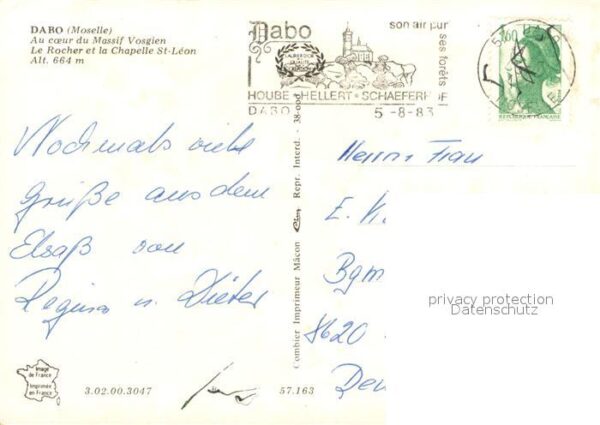 DABO (Moselle)
Au cœur du Massif Vosgien
Le Rocher et la Chapelle St-Léon
Alt. 664 m
Dabo
son air pur
ses forêts
HOUBE-HELLERT-SCHAEFERHOF
DABO 5-8-83
1,60
REPUBLIQUE FRANÇAISE
Nochmals viele
Grüße aus dem
Elsaß von
Regina u. Dieter
Combier Imprimeur Mâcon Cim Repr. Interd. - 38-00d
Herrn Frau
E. K
Bgm
8620
Deu
privacy protection
Datenschutz
Image
de France
Imprimée
en France
3.02.00.3047
57.163